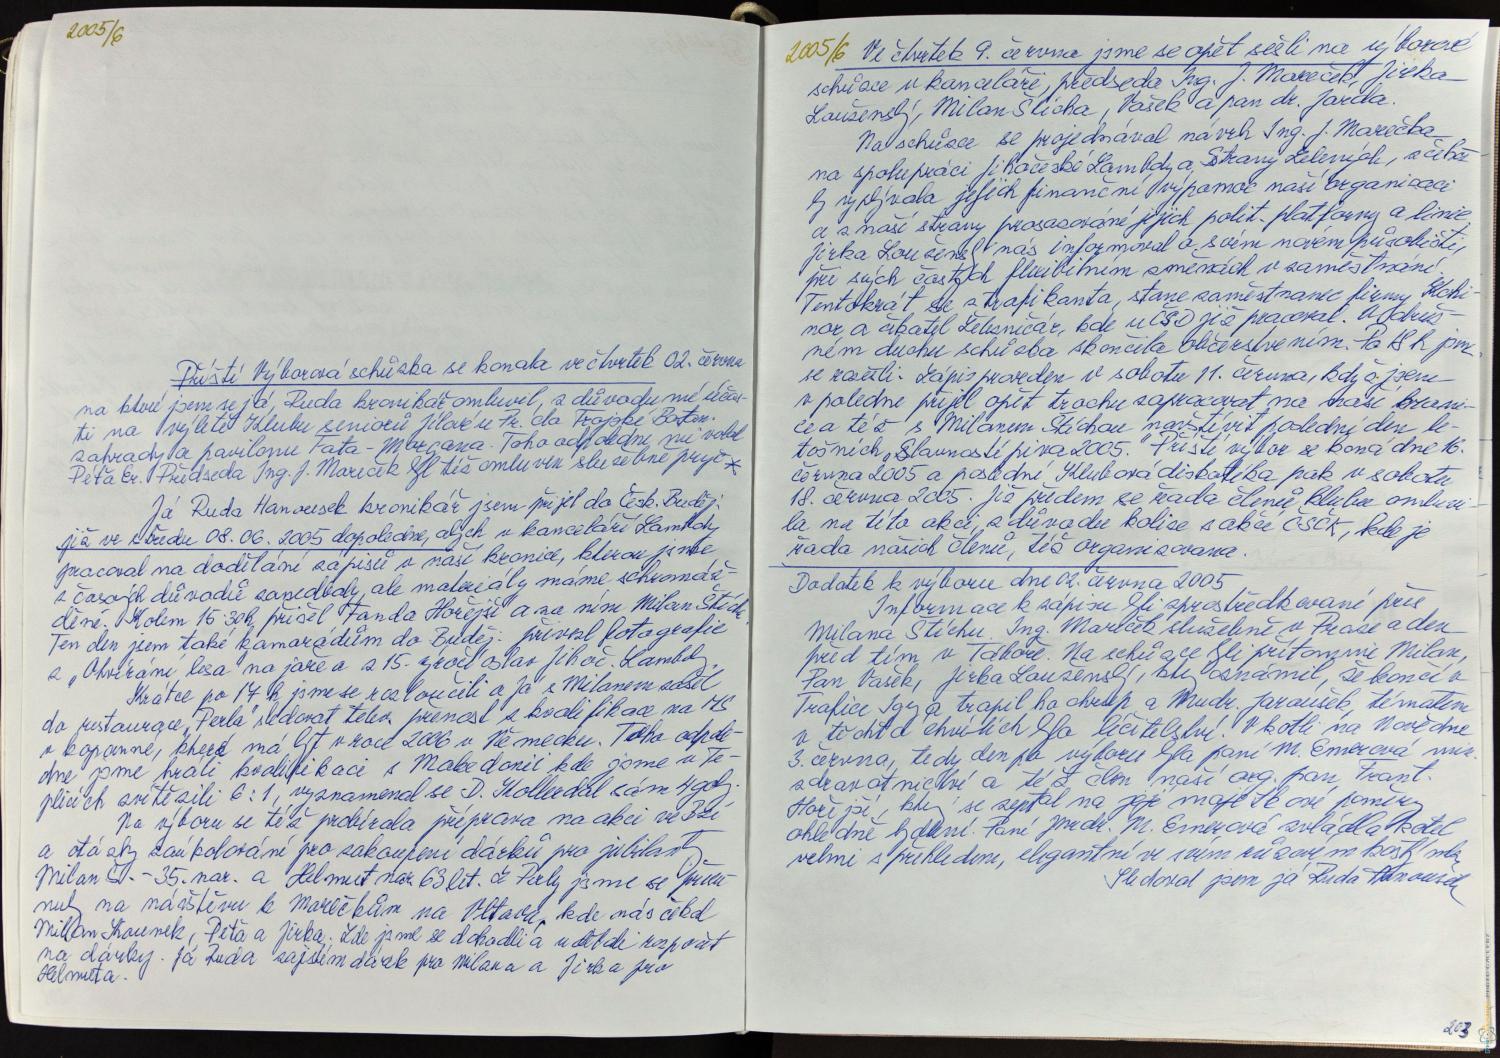 2005/6
Příští Výborová schůzka se konala ve čtvrtek 02. června
na které jsem se já, Ruda kronikář omluvil, z důvodu mé účas-
ti na výletě Klubu seniorů Jílové u Pr. do Trojské Botan.
zahrady a pavilonu Fata-Morgana. Toho odpoledne, mi volal
Péťa Er. Předseda Ing. J. Mareček byl též omluven služebně pryč *
Já Ruda Hanousek kronikář jsem přijel do Česk. Buděj.
již ve středu 08.06.2005 dopoledne, abych v kanceláři Lambdy
pracoval na dodělání zápisů v naší kronice, kterou jsme
z časových důvodů zanedbali, ale materiály máme schromáž-
děné. Kolem 15.30h, přišel Fanda Hořejší a za ním Milan Štich.
Ten den jsem také kamarádům do Buděj. přivezl fotografie
z „Otvírání lesa na jaře a z 15. výročí oslav Jihoč. Lambdy.
Krátce po 17 h, jsme se rozloučili a já s Milanem zašel
do restaurace „Perla" sledovat telev. přenosl z kvalifikace na MS
v kopanné, které má být v roce 2006 v Německu. Toho odpole-
dne jsme hráli kvalifikaci s Makedonií kde jsme v Te-
plicích zvítězili 6:1, vyznamenal se D. Kollerdal sám 4 góly.
Na výboru se též probírala příprava na akci ve Brně
a otázky zaúkolování pro zakoupení dárků pro jubilanty
Milan Š. - 35. nar. a Helmut nar. 63 let. Z Perly jsme se přesu-
nuly na návštěvu k Marečkům na Vltavu, kde nás čekal
Milan Kounek, Péťa a Jirka. Zde jsme se dohodli a udělali rozpočet
na dárky. Já Ruda zajistím dárek pro Milana a Jirka pro
Helmuta.
2005/6 Ve čtvrtek 9. června jsme se opět sešli na výborové
schůzce v kanceláři, předseda Ing. J. Mareček, Jirka
Louženský, Milan Štícha, Vašek a pan dr. Jarda.
Na schůzce se projednával návrh Ing. J. Marečka
na spolupráci Jihočeské Lambdy a Strany Zelených, z čeho
by vyplývala jejich finanční výpomoc naší organizaci
a z naší strany prosazování jejich polit. platformy a linie.
Jirka Louženský nás informoval o svém novém působišti,
při svých častých flexibilním změnách v zaměstnání.
Tentokrát se z trafikanta, stane zaměstnanec firmy Kohi-
nor a čekatel Železničář, kde u ČSD již pracoval. V družném
duchu schůzka skončila občerstvením. Po 18 h. jsme
se rozešli. Zápis proveden v sobotu 11. června, kdy jsem
v poledne přijel opět trochu zapracovat na naší kroni-
ce a též s Milanem Štíchou navštívit poslední den le-
tošních „Slavností piva 2005." Příští výbor se koná dne 16.
června 2005 a poslední Klubová diskotéka pak v sobotu
18. června 2005. Již předem se řada členů klubu omluvi-
la na této akci, z důvodu kolize s akcí ČSČK, kde je
řada našich členů, též organizována.
Dodatek k výboru dne 02. června 2005
Informace k zápisu byli zprostředkované přes
Milana Štíchu. Ing. Mareček služebně v Praze a den
před tím v Táboře. Na schůzce byli přítomni Milan,
Pan Vašek, Jirka Louženský, který oznámil, že končí v
Trafice Igy a trápil ho chrup a Mudr. Jaroušek, tématem
v těchto chvílích bylo léčitelství. V kotli na Nově dne
3. června, tedy den po výboru byla paní M. Emerová min.
zdravotnictví a též člen naší org. pan Frant.
Hořejší, který se zeptal na její majetkové poměry
ohledně bydlení. Paní Mudr. M. Emerová zvládla kotel
velmi s přehledem, elegantní ve svém růžovém kostýmku
Sledoval jsem já Ruda Hanousek
203